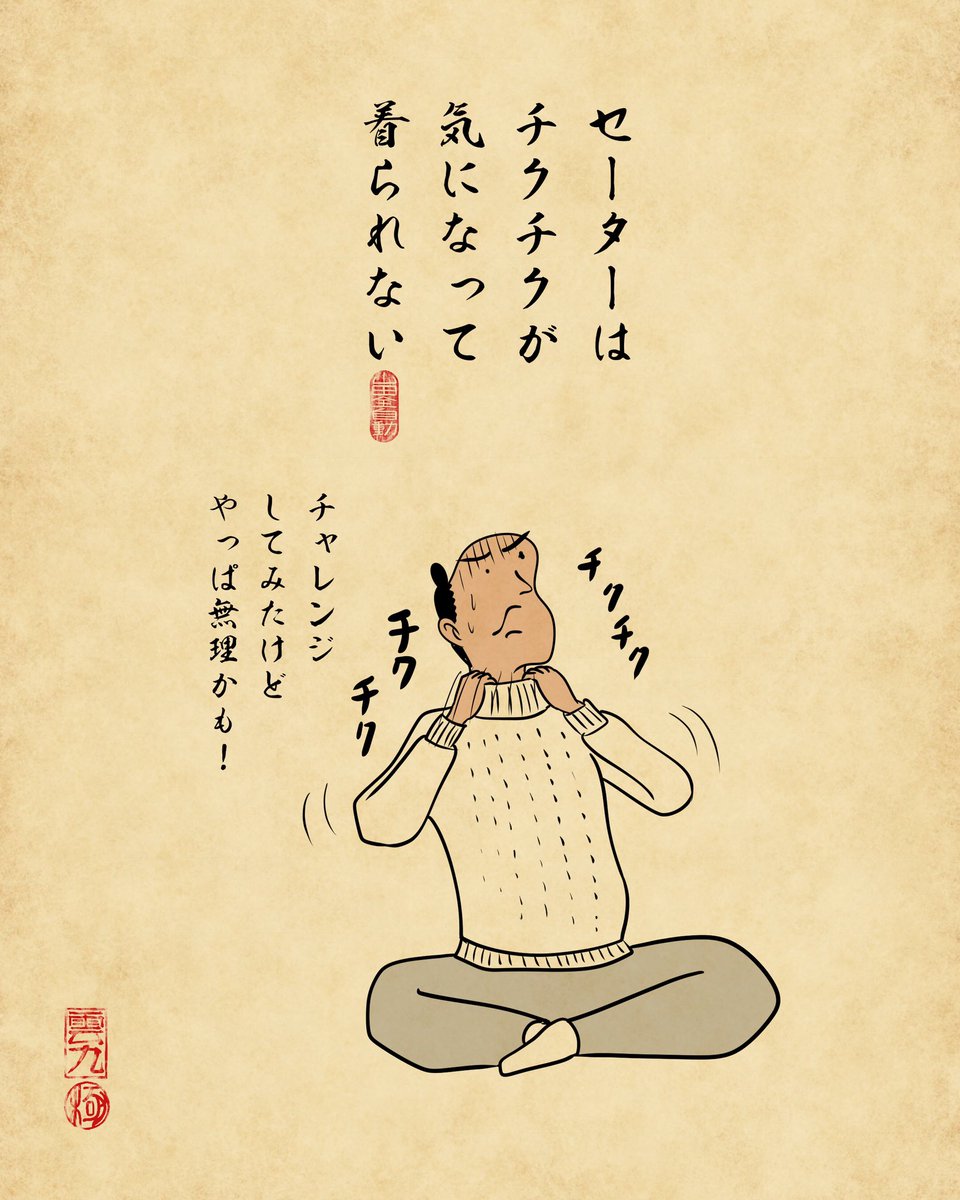 セーターは
チクチクが
気になって
着られない
チャレンジ
してみたけど
やっぱ無理かも！
チクチク
チク
チク